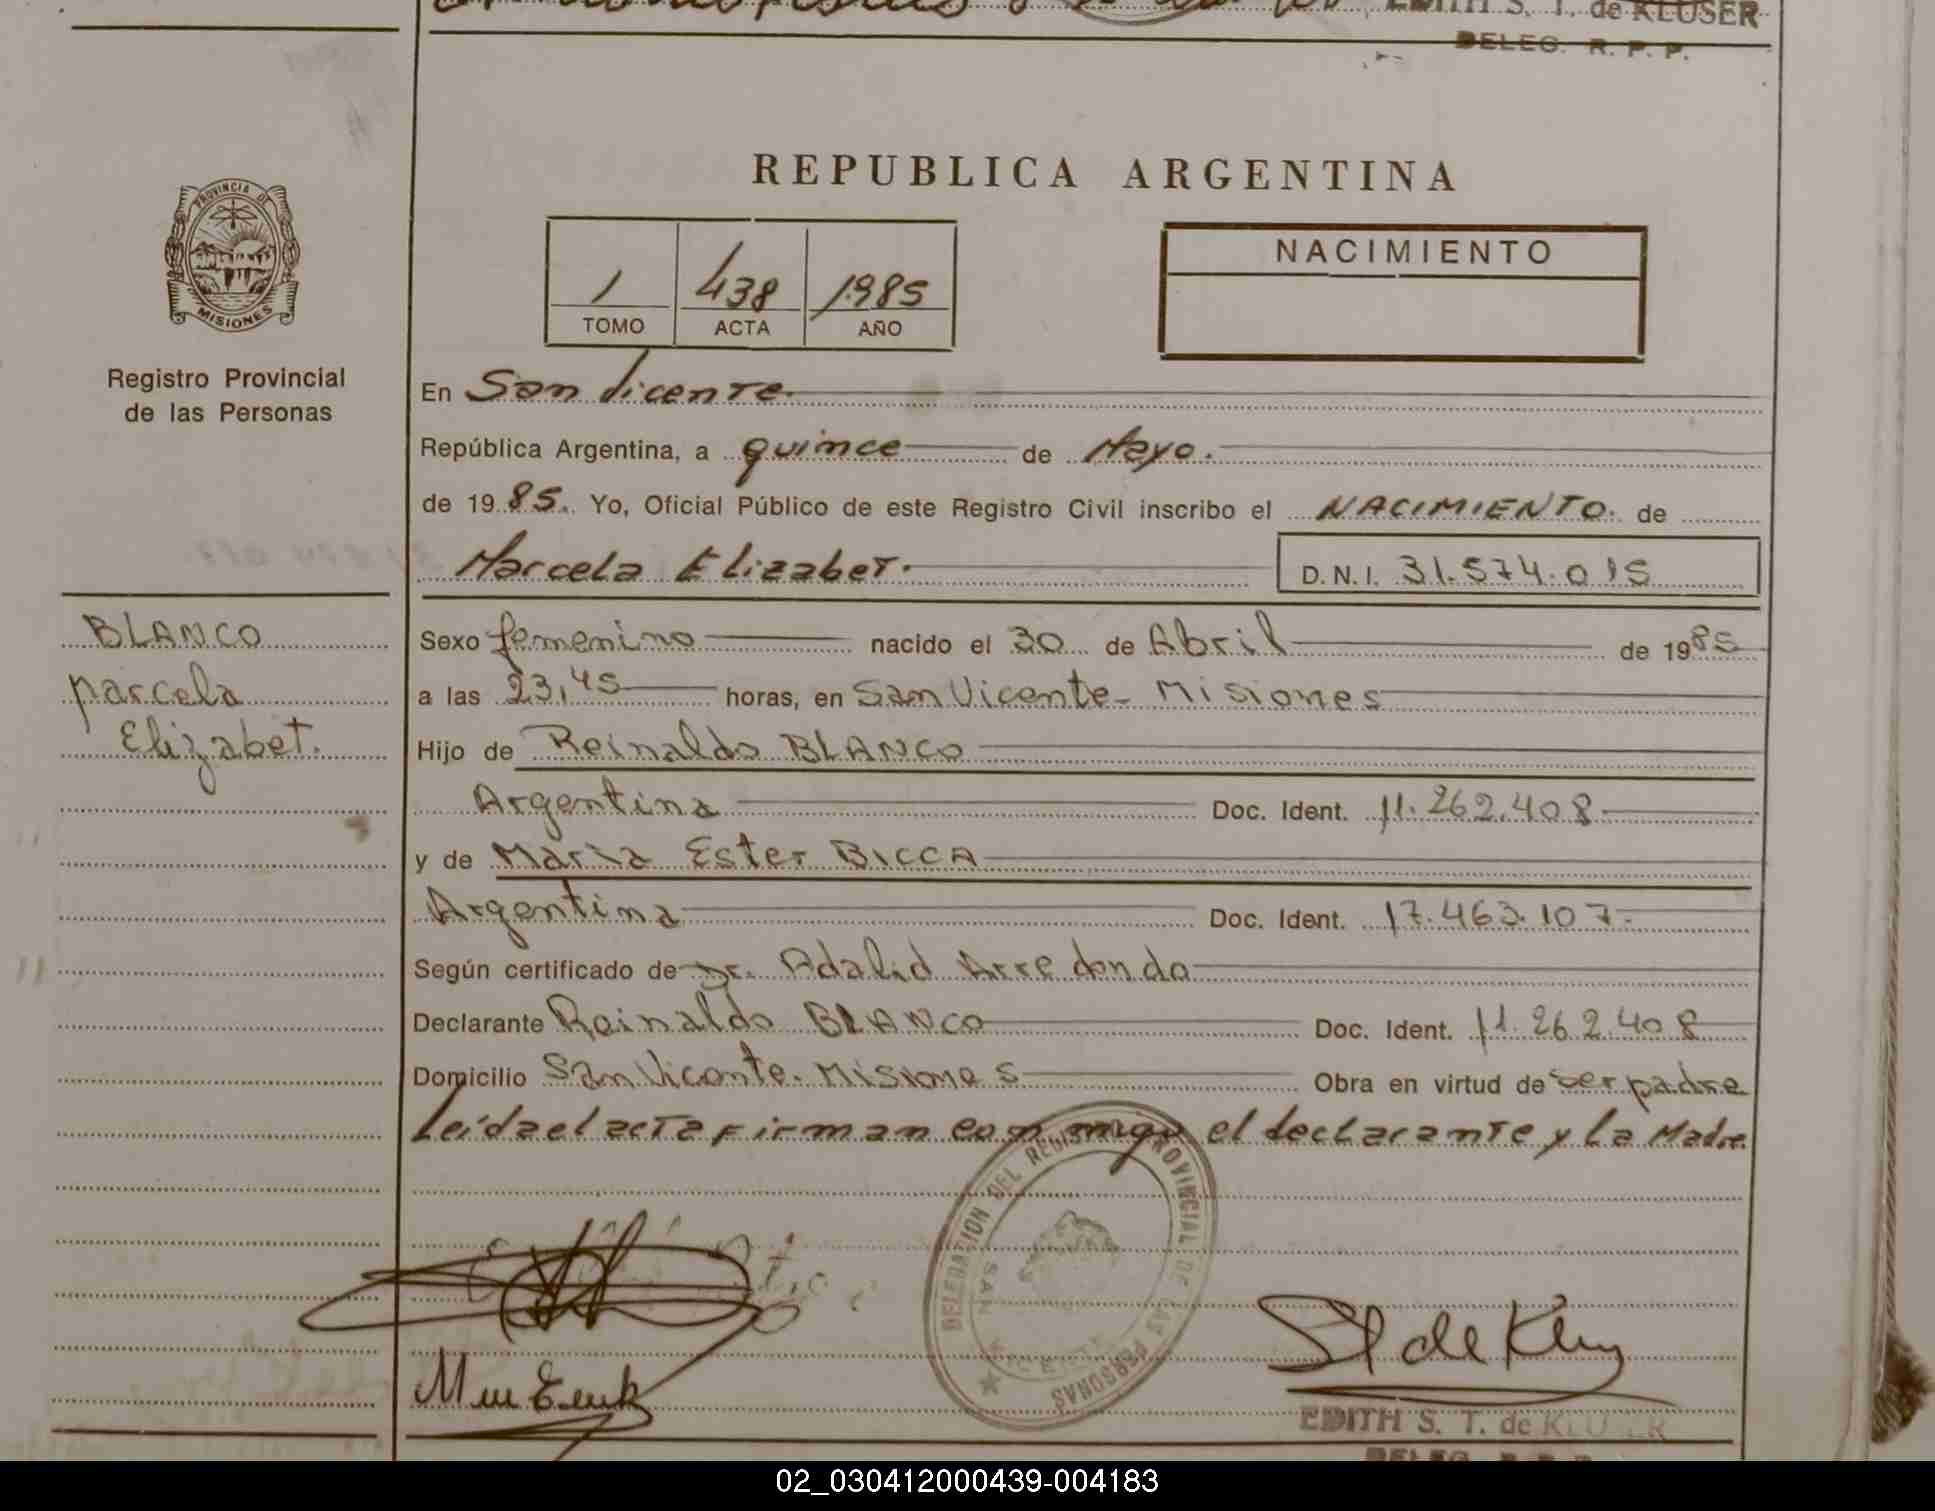 EDITH S. T. de KLUSER
DELEG. R. P. P.
PROVINCIA DE
MISIONES
Registro Provincial
de las Personas
BLANCO
Marcela
Elizabet.
REPUBLICA ARGENTINA
1 438 1985
TOMO ACTA AÑO
NACIMIENTO
En San Vicente.
República Argentina, a quince de Mayo.
de 1985. Yo, Oficial Público de este Registro Civil inscribo el NACIMIENTO. de
Marcela Elizabet. D.N.I. 31.574.015
Sexo femenino nacido el 30 de Abril de 1985
a las 23,45 horas, en San Vicente - Misiones
Hijo de Reinaldo BLANCO
Argentina Doc. Ident. 11.262.408
y de Maria Ester BICCA
Argentina Doc. Ident. 17.463.107.
Según certificado de Dr. Adalid Arredondo
Declarante Reinaldo BLANCO Doc. Ident. 11.262.408
Domicilio San Vicente - Misiones Obra en virtud de ser padre
Leída el acta firman conmigo el declarante y la Madre.
DELEGACION DEL REGISTRO PROVINCIAL DE LAS PERSONAS
SAN VICENTE
EDITH S. T. de KLUSER
DELEG. R. P. P.
02_030412000439-004183